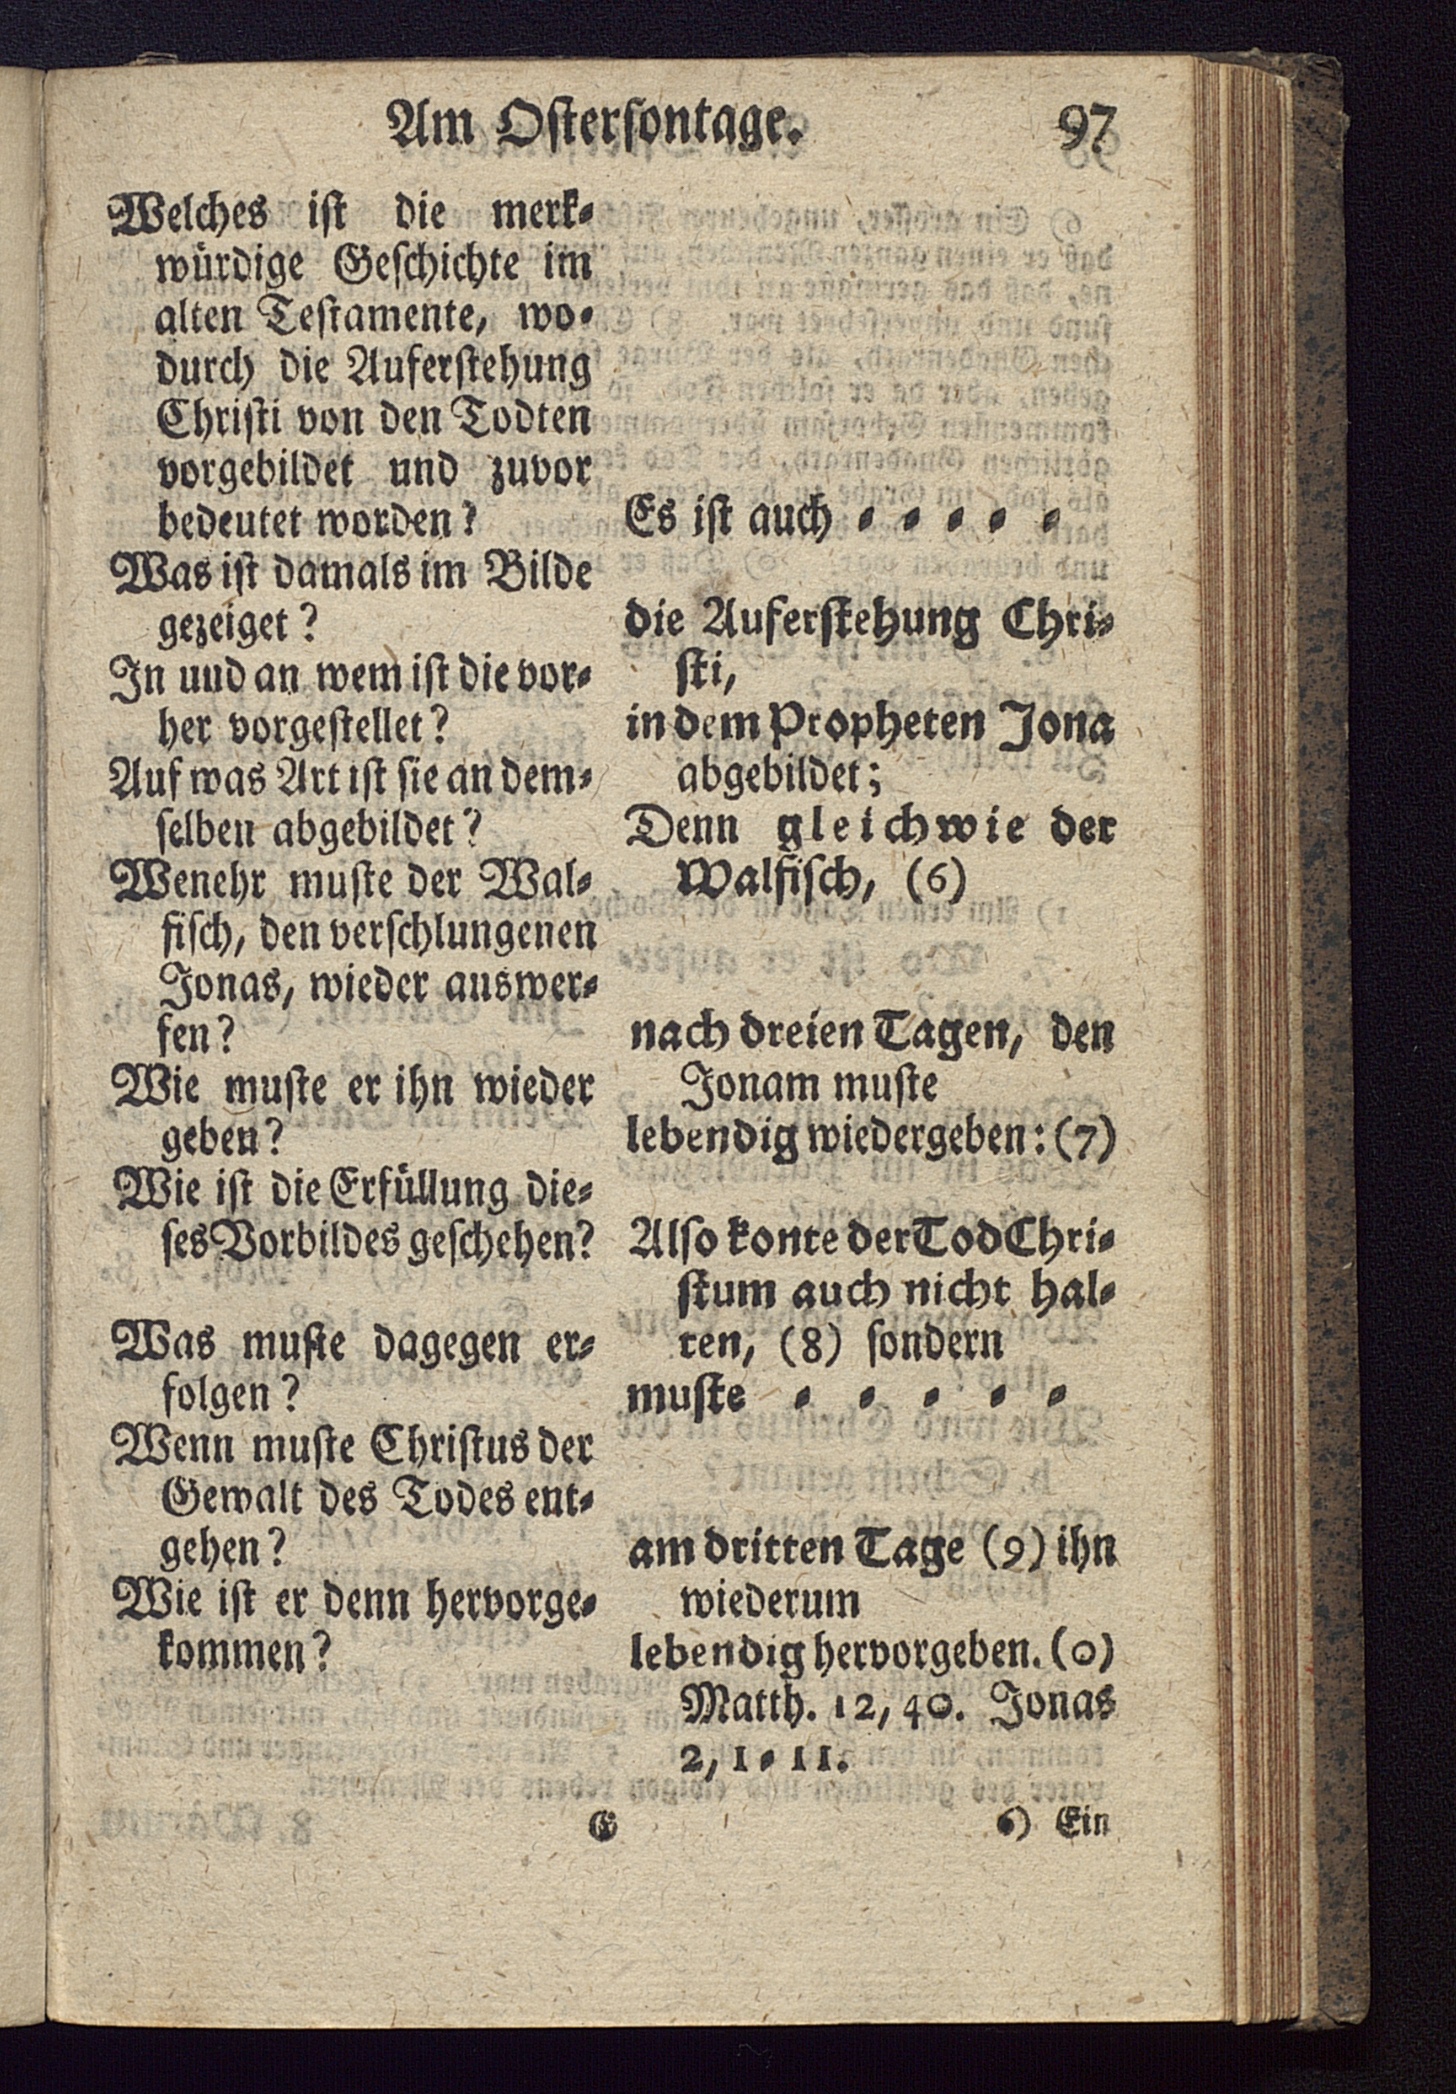 Am Ostersontage. 97
Welches ist die merk-
würdige Geschichte im
alten Testamente, wo-
durch die Auferstehung
Christi von den Todten
vorgebildet und zuvor
bedeutet worden?
Was ist damals im Bilde
gezeiget?
In uud an wem ist die vor-
her vorgestellet?
Auf was Art ist sie an dem-
selben abgebildet?
Wenehr muste der Wal-
fisch, den verschlungenen
Jonas, wieder auswer-
fen?
Wie muste er ihn wieder
geben?
Wie ist die Erfüllung die-
ses Vorbildes geschehen?
Was muste dagegen er-
folgen?
Wenn muste Christus der
Gewalt des Todes ent-
gehen?
Wie ist er denn hervorge-
kommen?
Es ist auch - - - - -
die Auferstehung Chri-
sti,
in dem Propheten Jona
abgebildet;
Denn gleichwie der
Walfisch, (6)
nach dreien Tagen, den
Jonam muste
lebendig wiedergeben: (7)
Also konte der Tod Chri-
stum auch nicht hal-
ten, (8) sondern
muste - - - - -
am dritten Tage (9) ihn
wiederum
lebendig hervorgeben. (0)
Matth. 12, 40. Jonas
2, 1-11.
G 6) Ein